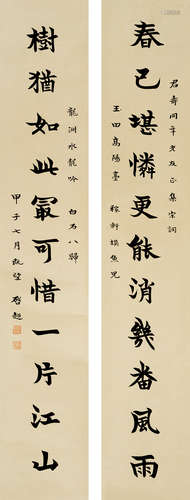 君壽同年老友正集宋詞
春已堪憐更能消幾番風雨
玉田高陽臺 稼軒摸魚兒
龍洲水龍吟 白石八歸
樹猶如此冣可惜一片江山
甲子七月既望 啟超